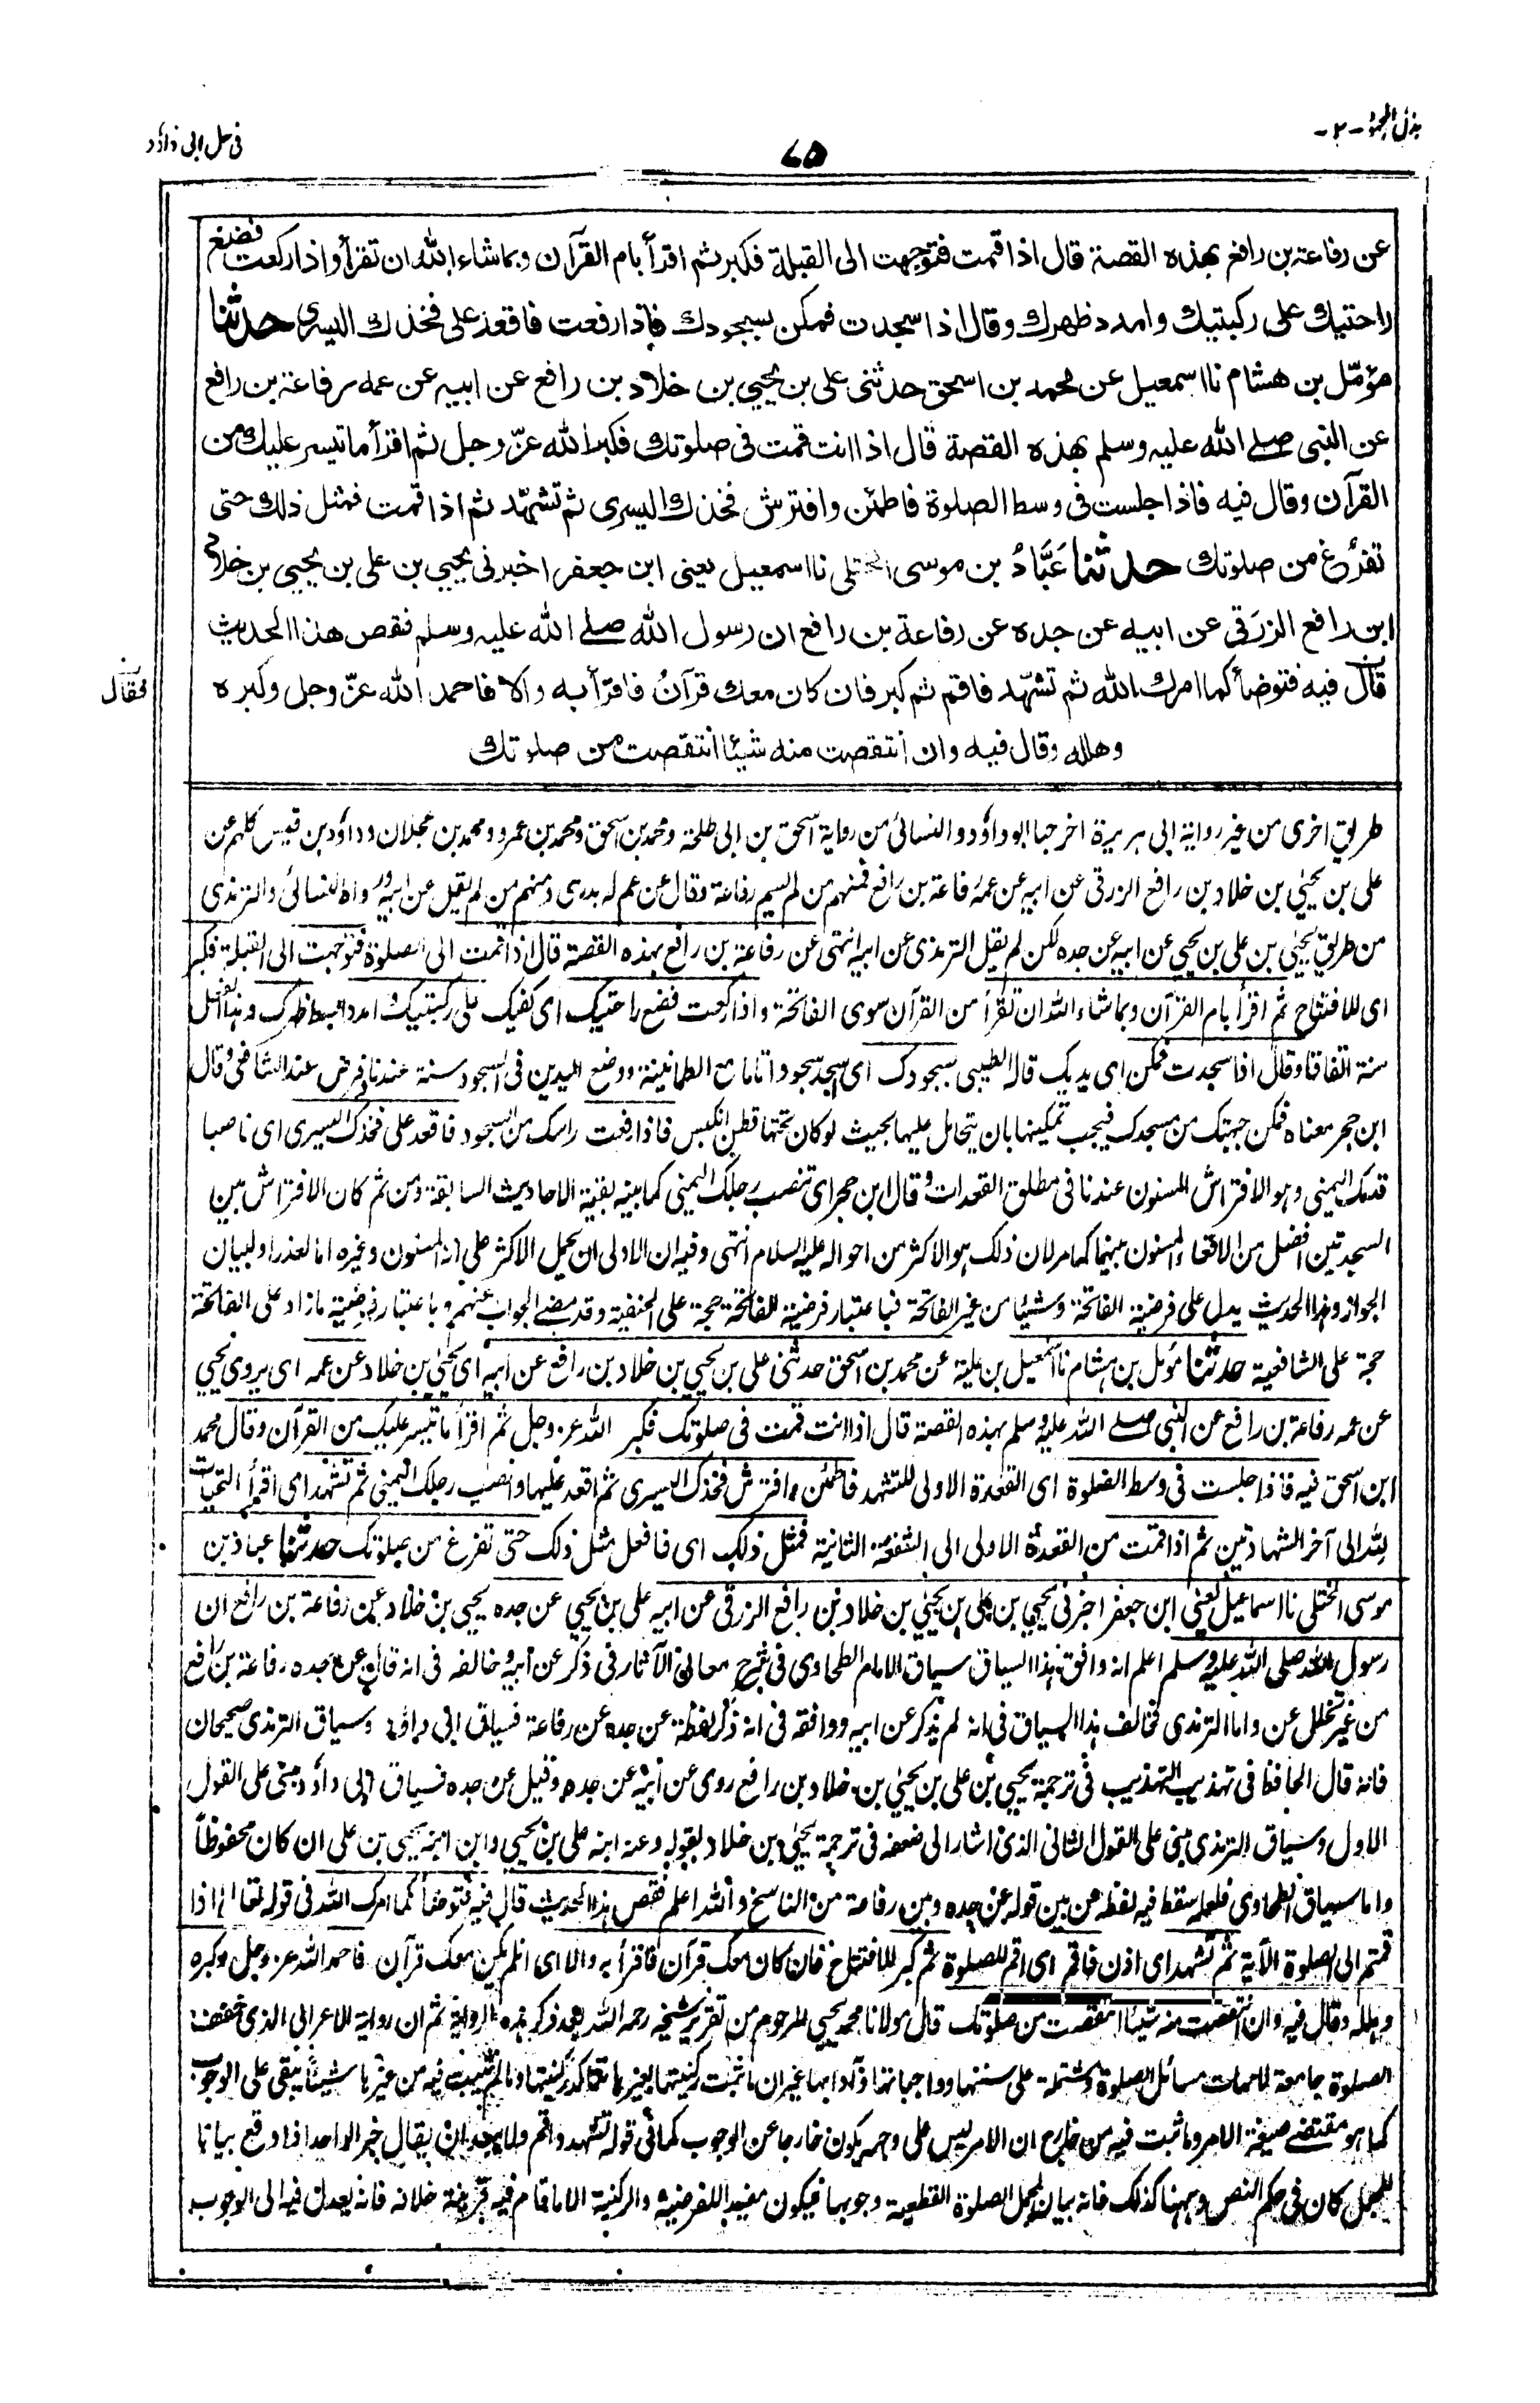 بذل المجهود -٢-
٧٥
في حل ابي داؤد
عن رفاعة بن رافع بهذه القصة قال اذا قمت فتوجهت الى القبلة فكبر ثم اقرأ بام القرآن وبما شاء الله ان تقرأ واذا ركعت فضع
راحتيك على ركبتيك وامدد ظهرك وقال اذا سجدت فمكن بسجودك فاذا رفعت فاقعد على فخذك اليسرى حدثنا
مؤمّل بن هشام نا اسمعيل عن محمد بن اسحق حدثنى على بن يحيي بن خلاد بن رافع عن ابيه عن عمه رفاعة بن رافع
عن النبى صلے الله عليه وسلم بهذه القصة قال اذا انت قمت فى صلوتك فكبر الله عزّ وجل ثم اقرأ ما تيسر عليك من
القرآن وقال فيه فاذا جلست فى وسط الصلوة فاطمئن وافترش فخذك اليسرى ثم تشهّد ثم اذا قمت فمثل ذلك حتى
تفرُغ من صلوتك حدثنا عَبَّادُ بن موسى الختلى نا اسمعيل يعنى ابن جعفر اخبرنى يحيي بن على بن يحيي بن خلاد
ابن رافع الزرَقى عن ابيه عن جده عن رفاعة بن رافع ان رسول الله صلے الله عليه وسلم فقص هذا الحديث
قال فيه فتوضأ كما امرك الله ثم تشهّد فاقم ثم كبر فان كان معك قرآنٌ فاقرأ به والا فاحمد الله عزّ وجل وكبره
فقال
وهلله وقال فيه وان انتقصت منه شيئا انتقصت من صلوتك
طريق اخرى من غير رواية ابى هريرة اخرجها ابو داؤد والنسائى من رواية اسحق بن ابى طلحة ومحمد بن اسحق ومحمد بن عمرو ومحمد بن عجلان وداؤد بن قيس كلهم عن
على بن يحيٰي بن خلاد بن رافع الزرقى عن ابيه عن عمه رفاعة بن رافع فمنهم من لم يسم رفاعة وقال عن عم له بدرى ومنهم من لم يقل عن ابيه ورواه النسائى والترمذى
من طريق يحيٰي بن على بن يحيي عن ابيه عن جده لكن لم يقل الترمذى عن ابيه انتهى عن رفاعة بن رافع بهذه القصة قال اذا قمت الى الصلوة فتوجهت الى القبلة فكبر
اى للافتتاح ثم اقرأ بام القرآن وبما شاء الله ان تقرأ من القرآن سوى الفاتحة واذا ركعت فضع راحتيك اى كفيك على ركبتيك وامدد ابسط ظهرك وهذا الفعل
سنة اتفاقا وقال اذا سجدت فمكن اى يديك قاله الطيبى بسجودك اى اسجد سجودا تاما مع الطمانينة ووضع اليدين فى السجود سنة عندنا وفرض عند الشافعى وقال
ابن حجر معناه فمكن جبهتك من مسجدك فيجب تمكينها بان يتحامل عليها بحيث لو كان تحتها قطن انكبس فاذا رفعت راسك من السجود فاقعد على فخذك اليسرى اى ناصبا
قدمك اليمنى وهو الافتراش المسنون عندنا فى مطلق القعدات وقال ابن حجر اى تنصب رجلك اليمنى كما بينه بقية الاحاديث السابقة ومن ثم كان الافتراش بين
السجدتين افضل من الاقعاء المسنون بينهما كما مر لان ذلك هو الاكثر من احواله عليه السلام انتهى وفيه ان الاولى ان يحمل الاكثر على انه المسنون وغيره اما لعذر او لبيان
الجواز وهذا الحديث يدل على فرضية الفاتحة وشيئا من غير الفاتحة فباعتبار فرضية الفاتحة حجة على الحنفية وقد مضے الجواب عنهم وباعتبار فرضية ما زاد على الفاتحة
حجة على الشافعية حدثنا مؤمل بن هشام نا اسمعيل بن علية عن محمد بن اسحق حدثنى على بن يحيي بن خلاد بن رافع عن ابيه اى يحيٰي بن خلاد عن عمه اى يروى يحيي
عن عمه رفاعة بن رافع عن النبى صلے الله عليه وسلم بهذه القصة قال اذا انت قمت فى صلوتك فكبر الله عز وجل ثم اقرأ ما تيسر عليك من القرآن وقال محمد
ابن اسحق فيه فاذا جلست فى وسط الصلوة اى القعدة الاولى للتشهد فاطمئن وافترش فخذك اليسرى ثم اقعد عليها وانصب رجلك اليمنى ثم تشهد اى اقرأ التحيات
لله الى آخر الشهادتين ثم اذا قمت من القعدة الاولى الى الشفعة الثانية فمثل ذلك اى فافعل مثل ذلك حتى تفرغ من صلوتك حدثنا عباد بن
موسى الختلى نا اسماعيل يعنى ابن جعفر اخبرنى يحيي بن على بن يحيٰي بن خلاد بن رافع الزرقى عن ابيه على بن يحيي عن جده يحيي بن خلاد عن رفاعة بن رافع ان
رسول الله صلى الله عليه وسلم اعلم انه وافق هذا السياق سياق الامام الطحاوى فى شرح معانى الآثار فى ذكر عن ابيه وخالفه فى انه قال عن جده رفاعة بن رافع
من غير تخلل عن واما الترمذى فخالف هذا السياق فى انه لم يذكر عن ابيه ووافقه فى انه ذكر لفظة عن جده عن رفاعة فسياق ابى داؤد وسياق الترمذى صحيحان
فانه قال الحافظ فى تهذيب التهذيب فى ترجمة يحيي بن على بن يحيٰي بن خلاد بن رافع روى عن ابيه عن جده وقيل عن جده فسياق ابى داؤد مبنى على القول
الاول وسياق الترمذى مبنى على القول الثانى الذى اشار الى ضعفه فى ترجمة يحيٰي بن خلاد بقوله وعنه ابنه على بن يحيي وابن ابنه يحيي بن على ان كان محفوظاً
واما سياق الطحاوى فلعله سقط فيه لفظة عن بين قوله عن جده وبين رفاعة من الناسخ والله اعلم فقص هذا الحديث قال فيه فتوضأ كما امرك الله فى قوله تعالى اذا
قمتم الى الصلوة الآية ثم تشهد اى اذن فاقم اى اقم للصلوة ثم كبر للافتتاح فان كان معك قرآن فاقرأ به والا اى ان لم يكن معك قرآن فاحمد الله عز وجل وكبره
وهلله وقال فيه وان انتقصت منه شيئا انتقصت من صلوتك قال مولانا محمد يحيي المرحوم من تقرير شيخه رحمه الله بعد ذكر هذه الرواية ثم ان رواية الاعرابى الذى خفف
الصلوة جامعة لامهات مسائل الصلوة ومشتملة على سننها وواجباتها وآدابها غير ان ما ثبت ركنيتها بغيرها تتأكد ركنيتها وما لم يثبت فيه من غيرها شيئا يبقى على الوجوب
كما هو مقتضے صيغة الامر وما ثبت فيه من خارج ان الامر ليس على وجهه يكون خارجا عن الوجوب كما فى قوله تشهد واقم ولا يبعد ان يقال خبر الواحد اذا وقع بيانا
للمجمل كان فى حكم النص وههنا كذلك فانه بيان لمجمل الصلوة القطعية وجوبها فيكون مفيد اللفرضية والركنية الا ما قام فيه قرينة خلافه فانه يعدل فيه الى الوجوب